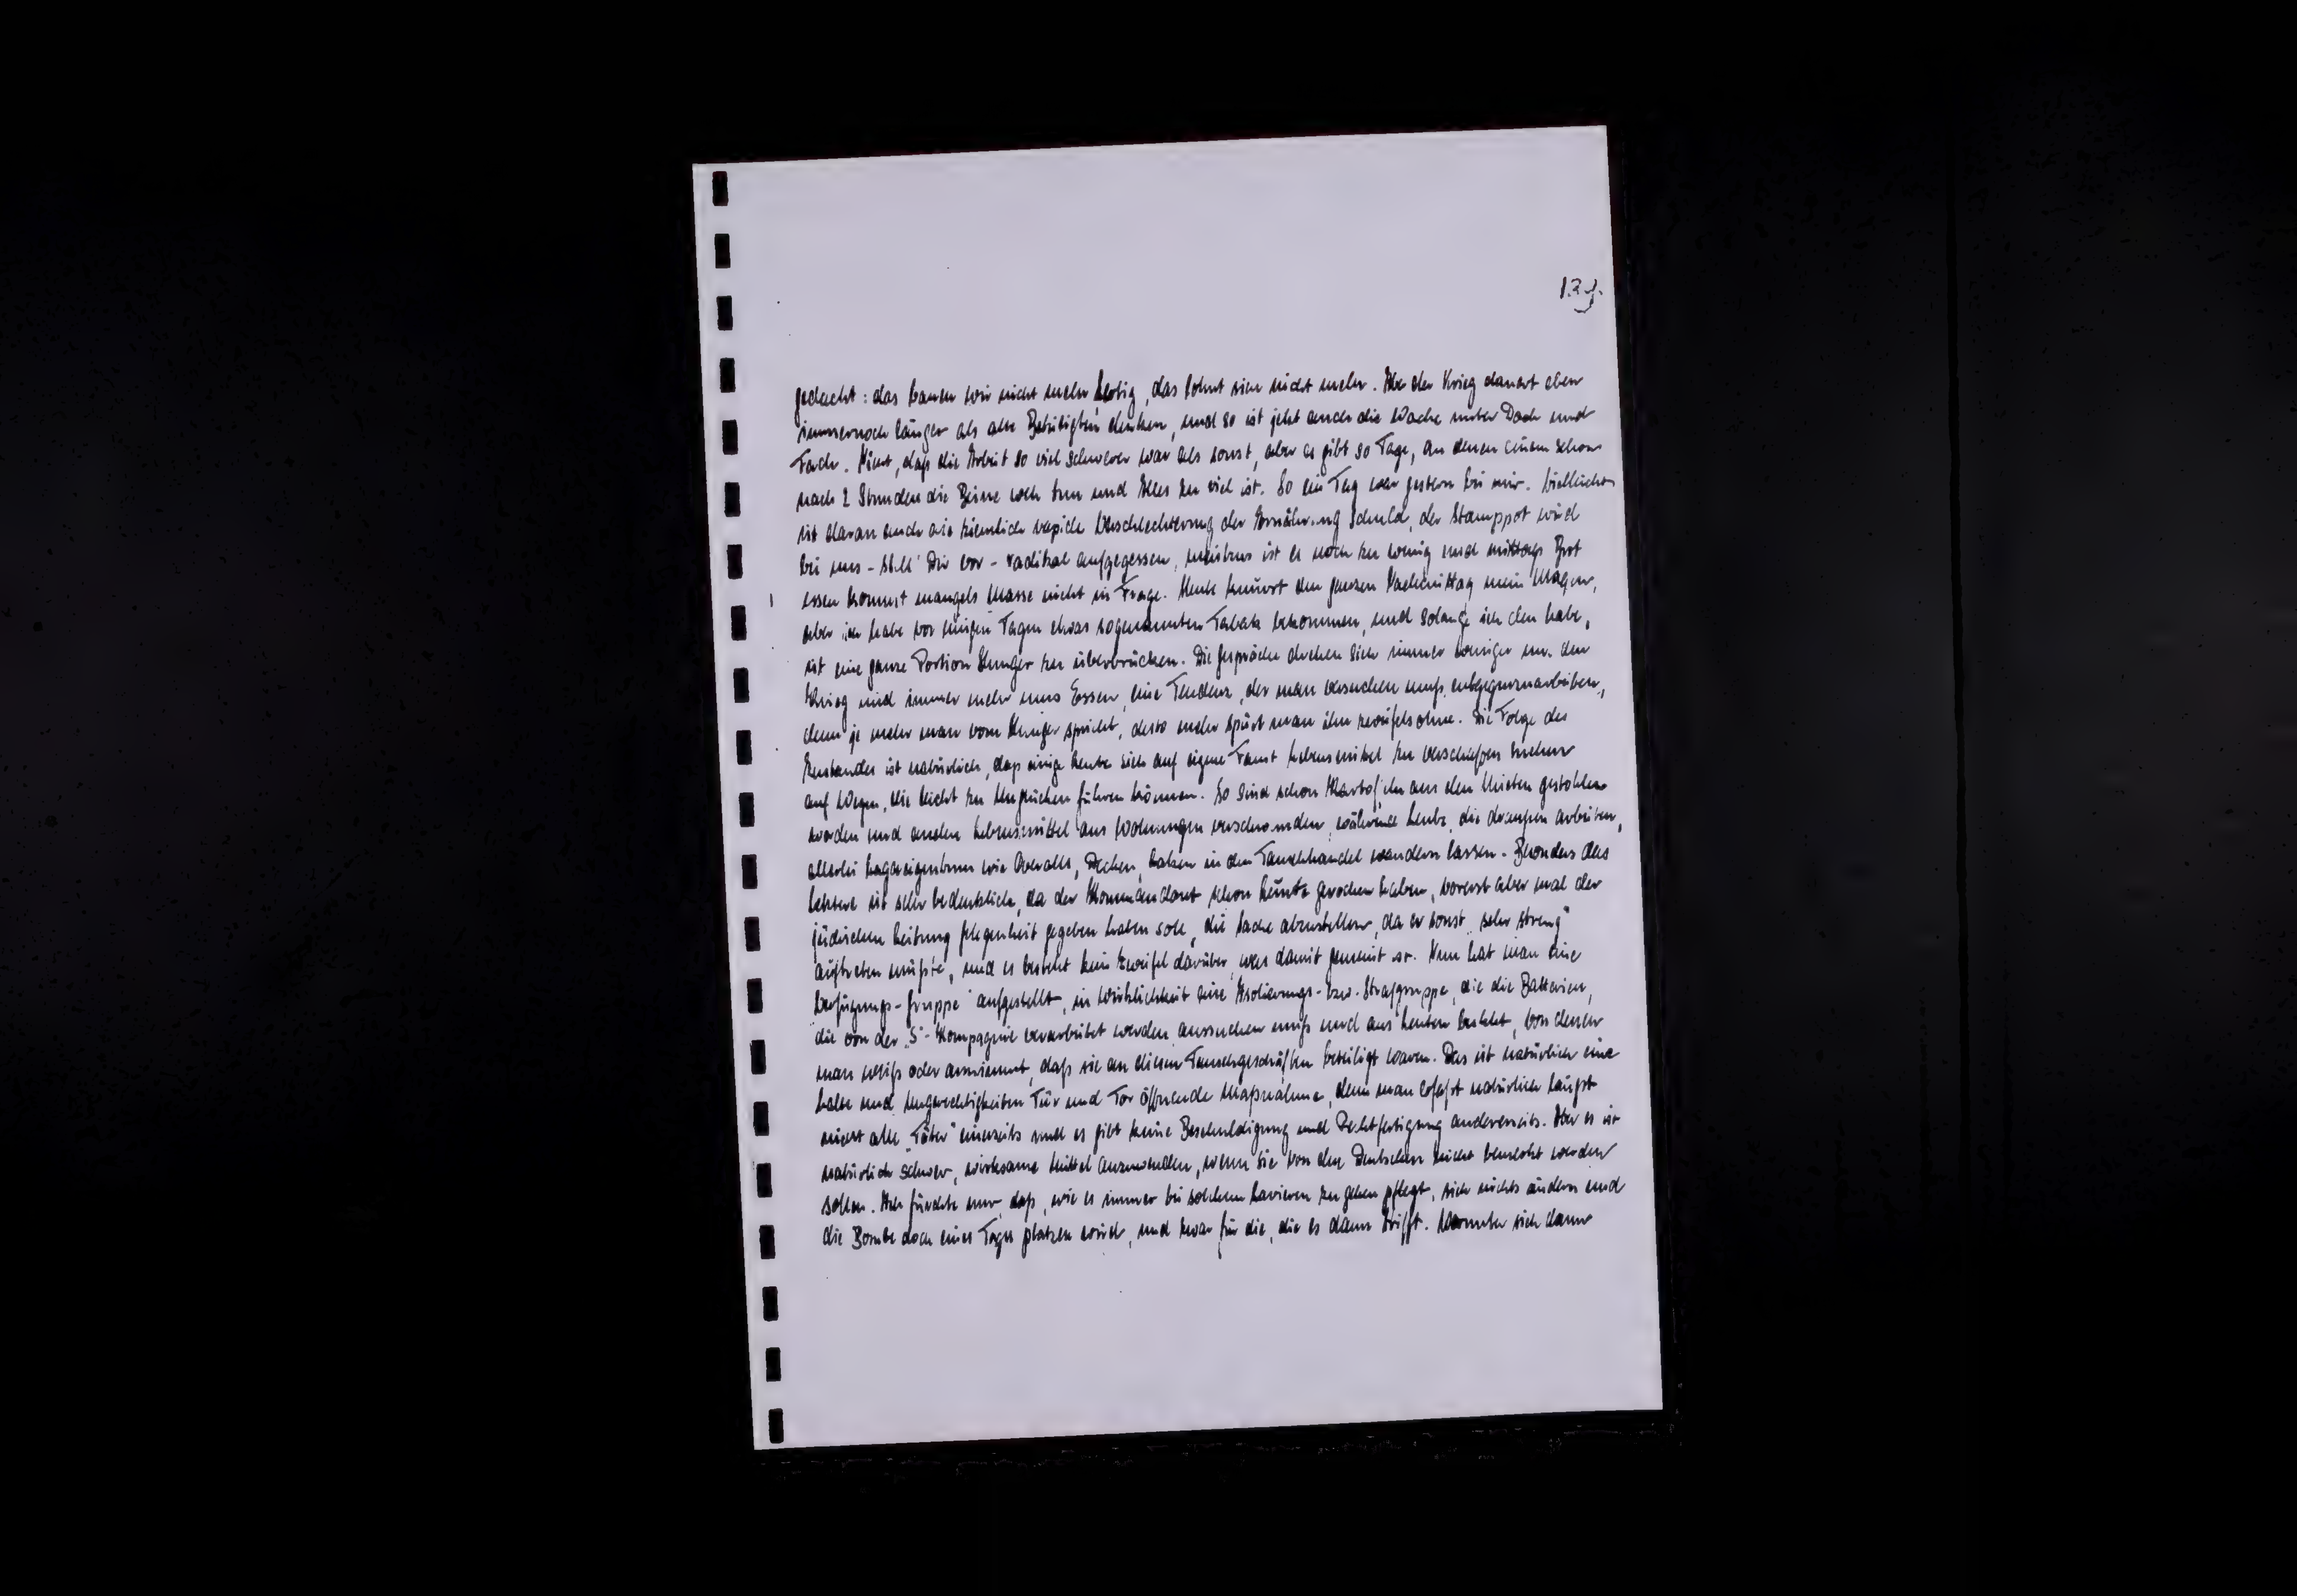 139.
gedacht: das bauen wir nicht mehr fertig, das lohnt sich nicht mehr. Aber der Krieg dauert eben
immernoch länger als alle Beteiligten denken, und so ist jetzt auch die Wache unter Dach und
Fach. Nicht, daß die Arbeit so viel schwerer war als sonst, aber es gibt so Tage, an denen einem schon
nach 2 Stunden die Beine weh tun und Alles zu viel ist. So ein Tag war gestern bei mir. Vielleicht
ist daran auch die ziemlich rapide Verschlechterung der Ernährung Schuld, der Stamppot wird
bei uns - stell' Dir vor - radikal aufgegessen, meistens ist es noch zu wenig und mittags Brot
essen kommt mangels Masse nicht in Frage. Heute knurrt den ganzen Nachmittag mein Magen,
aber ich habe vor einigen Tagen etwas sogenannten Tabak bekommen, und solange ich den habe,
ist eine ganze Portion Hunger zu überbrücken. Die Gespräche drehen sich immer weniger um den
Krieg und immer mehr ums Essen, eine Tendenz, der man versuchen muß, entgegenzuarbeiten,
denn je mehr man vom Hunger spricht, desto mehr spürt man ihn zweifelsohne. Die Folge des
Zustandes ist natürlich, daß einige Leute sich auf eigene Faust Lebensmittel zu verschaffen suchen
auf Wegen, die leicht zu Unglücken führen können. So sind schon Kartoffeln aus den Mieten gestohlen
worden und andere Lebensmittel aus Wohnungen verschwunden, während Leute, die draußen arbeiten,
allerlei Lagereigentum wie Overalls, Decken, haben in den Tauschhandel wandern lassen. Besonders das
letztere ist sehr bedenklich, da der Kommandant schon Lunte gerochen haben, vorerst aber mal der
jüdischen Leitung Gelegenheit gegeben haben soll, die Sache abzustellen, da er sonst "sehr streng"
auftreten müßte, und es besteht kein Zweifel darüber, was damit gemeint ist. Nun hat man eine
"Verfügungs-Gruppe" aufgestellt, in Wirklichkeit eine Isolierungs- bzw. Strafgruppe, die die Batterien,
die von der "S"-Kompagnie verarbeitet werden, aussuchen muß und aus Leuten besteht, von denen
man weiß oder annimmt, daß sie an diesen Tauschgeschäften beteiligt waren. Das ist natürlich eine
halbe und Ungerechtigkeiten Tür und Tor öffnende Maßnahme, denn man erfaßt natürlich längst
nicht alle "Täter" einerseits und es gibt keine Beschuldigung und Rechtfertigung andererseits. Aber es ist
natürlich schwer, wirksame Mittel anzuwenden, wenn sie von den Deutschen nicht bemerkt werden
sollen. Ich fürchte nur, daß, wie es immer bei solchem Lavieren zu gehen pflegt, sich nichts ändern und
die Bombe doch eines Tages platzen wird, und zwar für die, die es dann trifft. Worunter sich dann